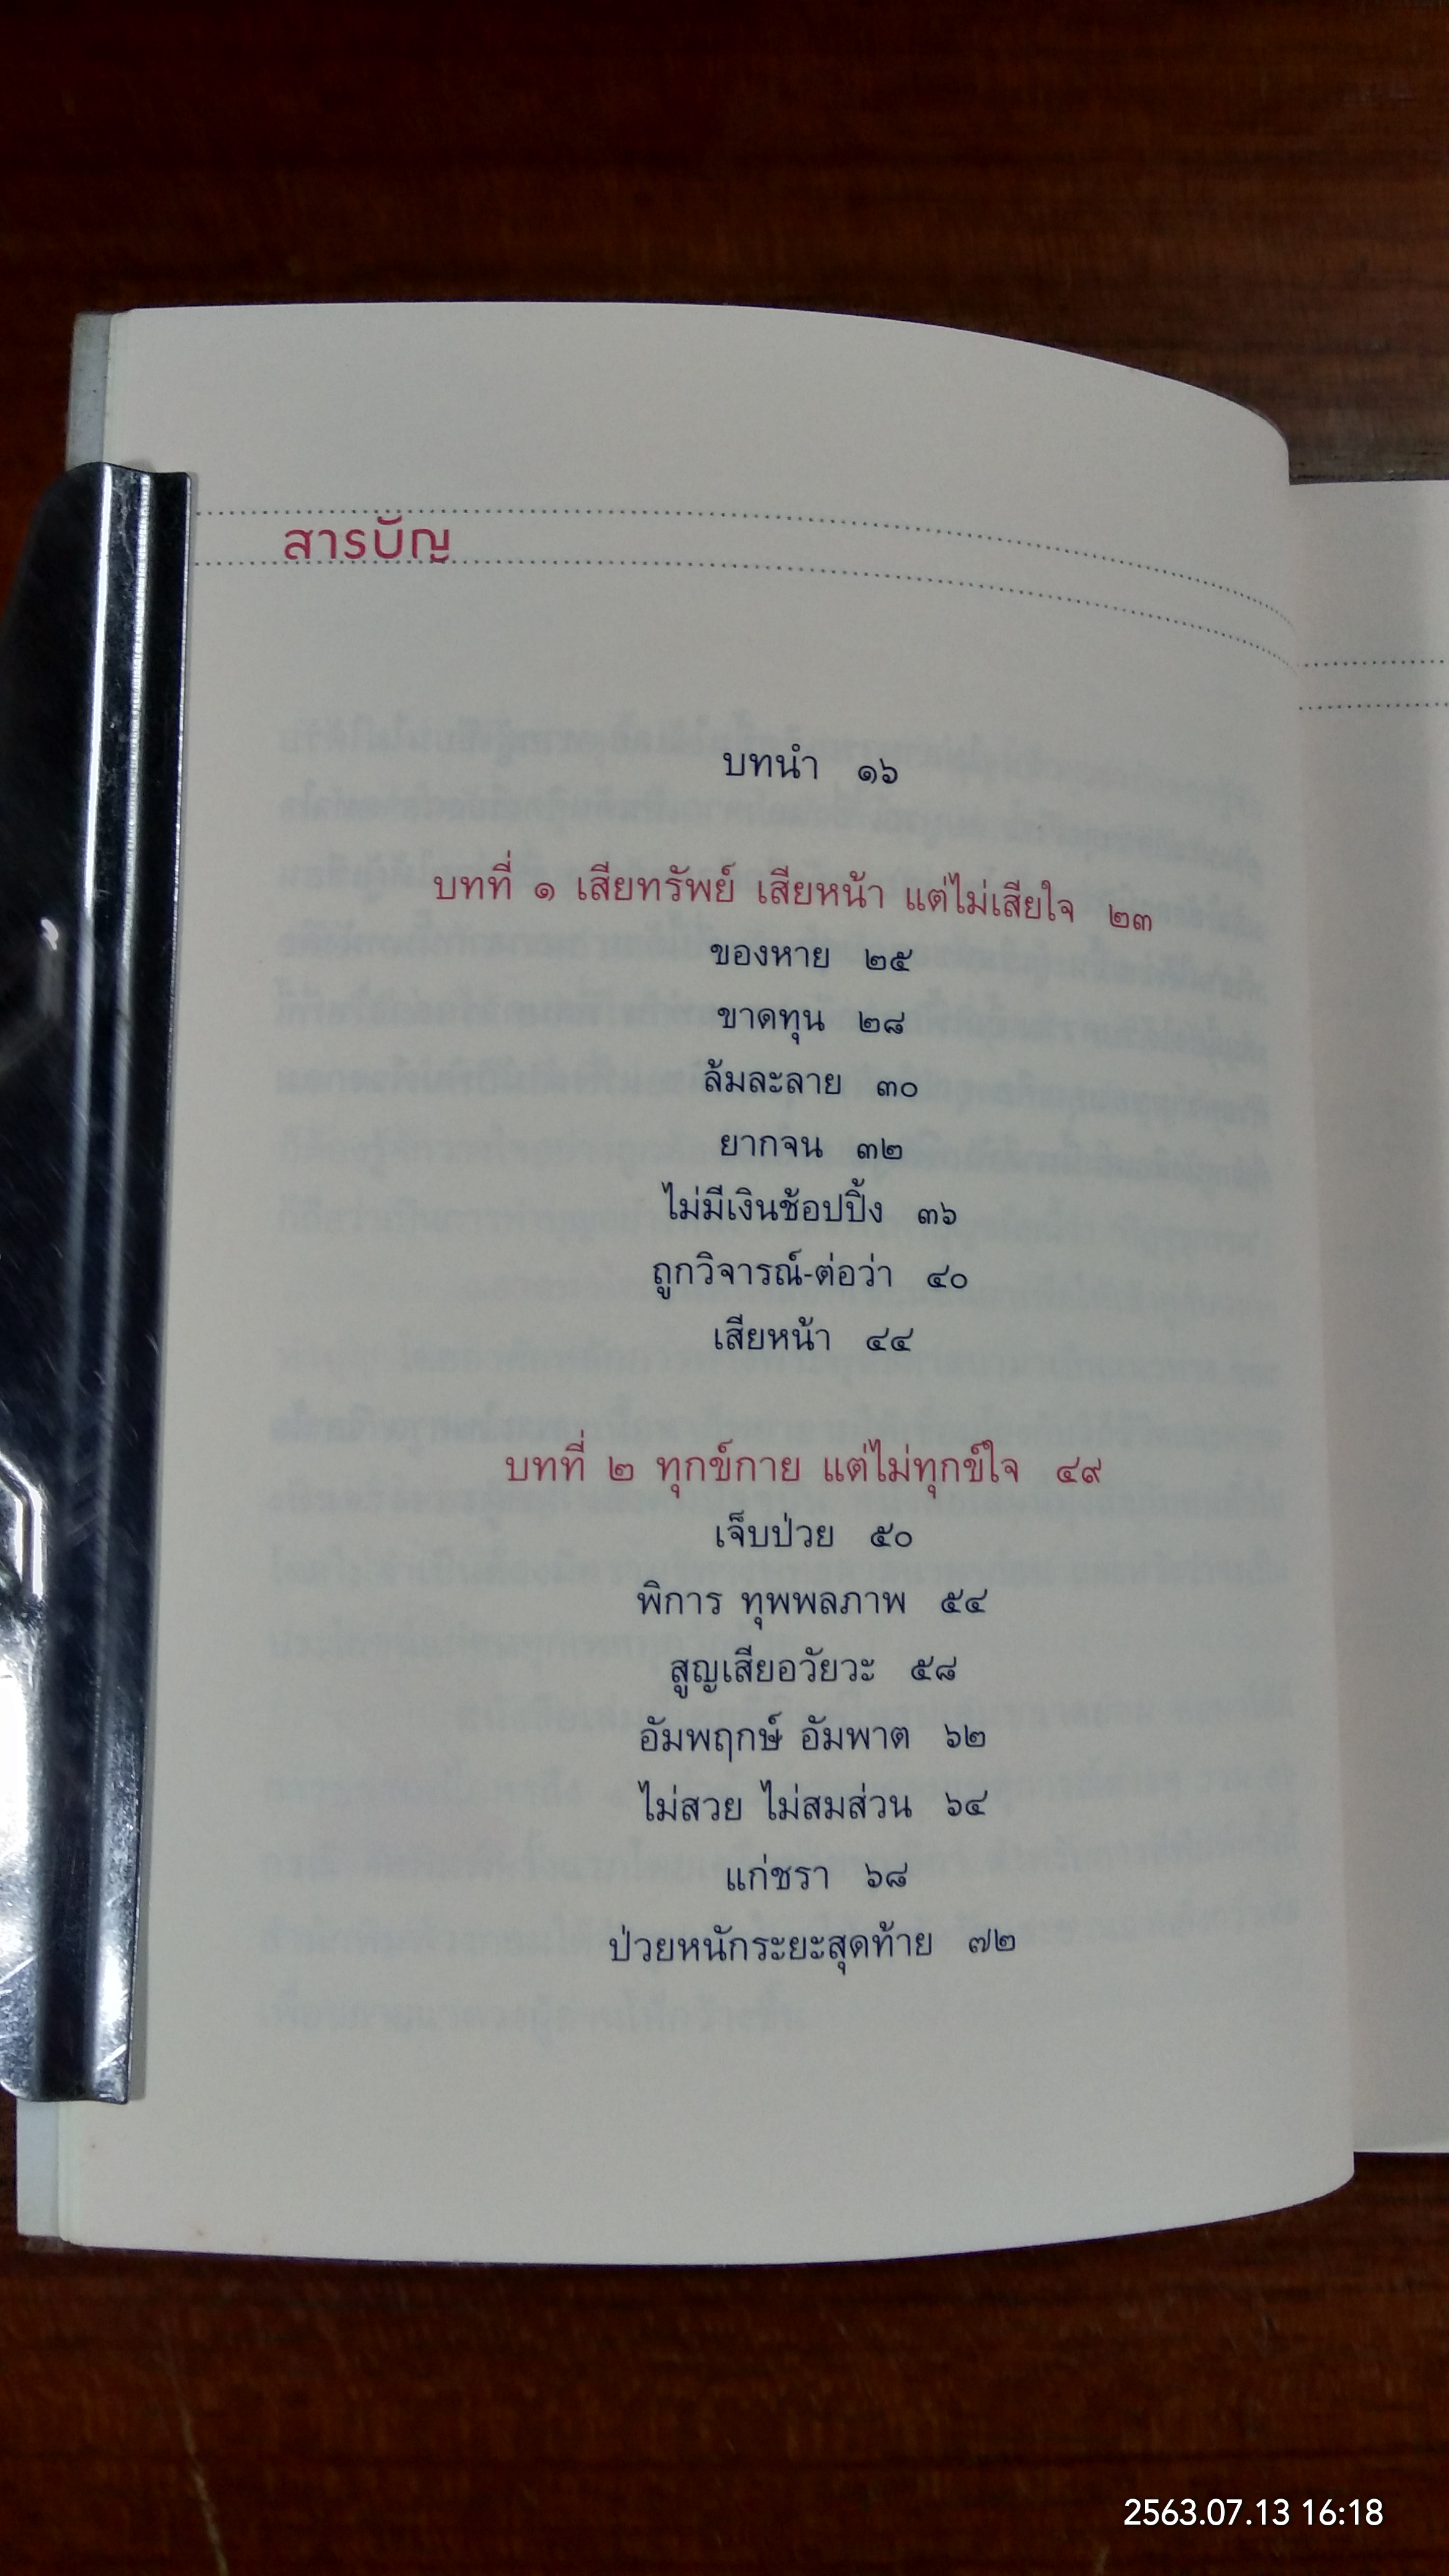 สารบัญ
บทนำ ๑๖
บทที่ ๑ เสียทรัพย์ เสียหน้า แต่ไม่เสียใจ ๒๓
ของหาย ๒๕
ขาดทุน ๒๘
ล้มละลาย ๓๐
ยากจน ๓๒
ไม่มีเงินช้อปปิ้ง ๓๖
ถูกวิจารณ์-ต่อว่า ๔๐
เสียหน้า ๔๔
บทที่ ๒ ทุกข์กาย แต่ไม่ทุกข์ใจ ๔๙
เจ็บป่วย ๕๐
พิการ ทุพพลภาพ ๕๔
สูญเสียอวัยวะ ๕๘
อัมพฤกษ์ อัมพาต ๖๒
ไม่สวย ไม่สมส่วน ๖๔
แก่ชรา ๖๘
ป่วยหนักระยะสุดท้าย ๗๒
2563.07.13 16:18